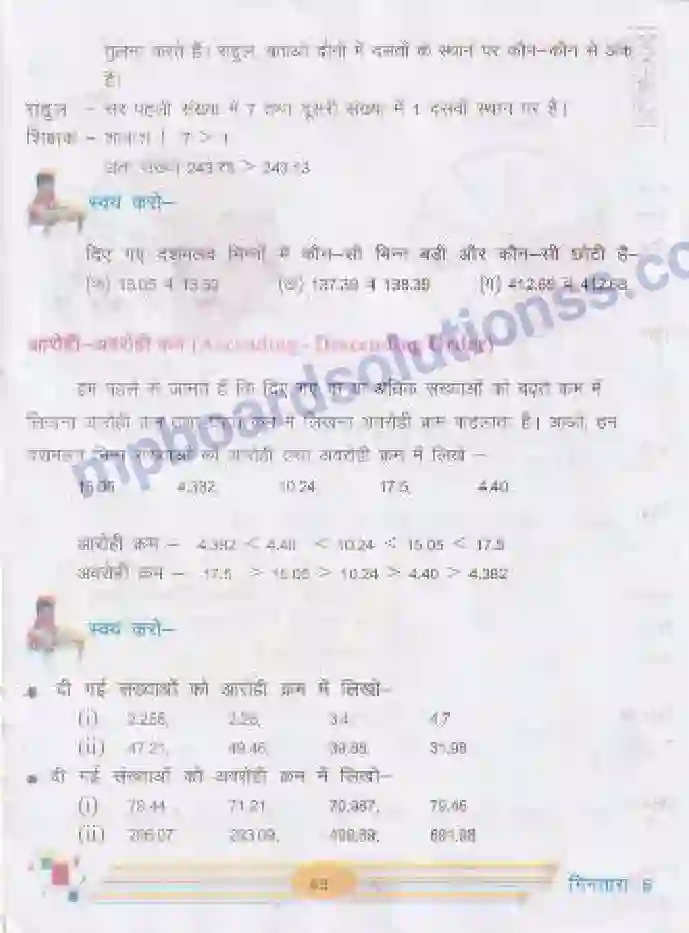 तुलना करते हैं। राहुल, बताओ दोनों में दसवाँ के स्थान पर कौन-कौन से अंक
है।
राहुल - सर पहली संख्या में 7 तथा दूसरी संख्या में 1 दसवाँ स्थान पर है।
शिक्षक - शाबाश ! 7 > 1
अतः संख्या 243.75 > 243.13
स्वयं करो-
दिए गए दशमलव भिन्नों में कौन-सी भिन्न बड़ी और कौन-सी छोटी है-
(क) (ख) 137.39 व 138.39 (ग)
आरोही-अवरोही क्रम (Ascending - Descending Order)
हम पहले से जानते हैं कि दिए गए दो या अधिक संख्याओं को बढ़ते क्रम में
लिखना आरोही क्रम तथा घटते क्रम में लिखना अवरोही क्रम कहलाता है। आओ, इन
दशमलव भिन्न संख्याओं को आरोही तथा अवरोही क्रम में लिखें -
15.05 4.382, 10.24, 17.5, 4.40
आरोही क्रम - 4.382 < 4.40 < 10.24 < 15.05 < 17.5
अवरोही क्रम - 17.5 > 15.05 > 10.24 > 4.40 > 4.382
स्वयं करो-
दी गई संख्याओं को आरोही क्रम में लिखो-
(i) 3.4, 4.7
(ii) 47.21, 49.46, 31.98
दी गई संख्याओं को अवरोही क्रम में लिखो-
(i) 78.44 71.21, 70.987, 79.46
(ii) 293.09, 691.98
गिनतारा 6
mpboardsolutionss.co